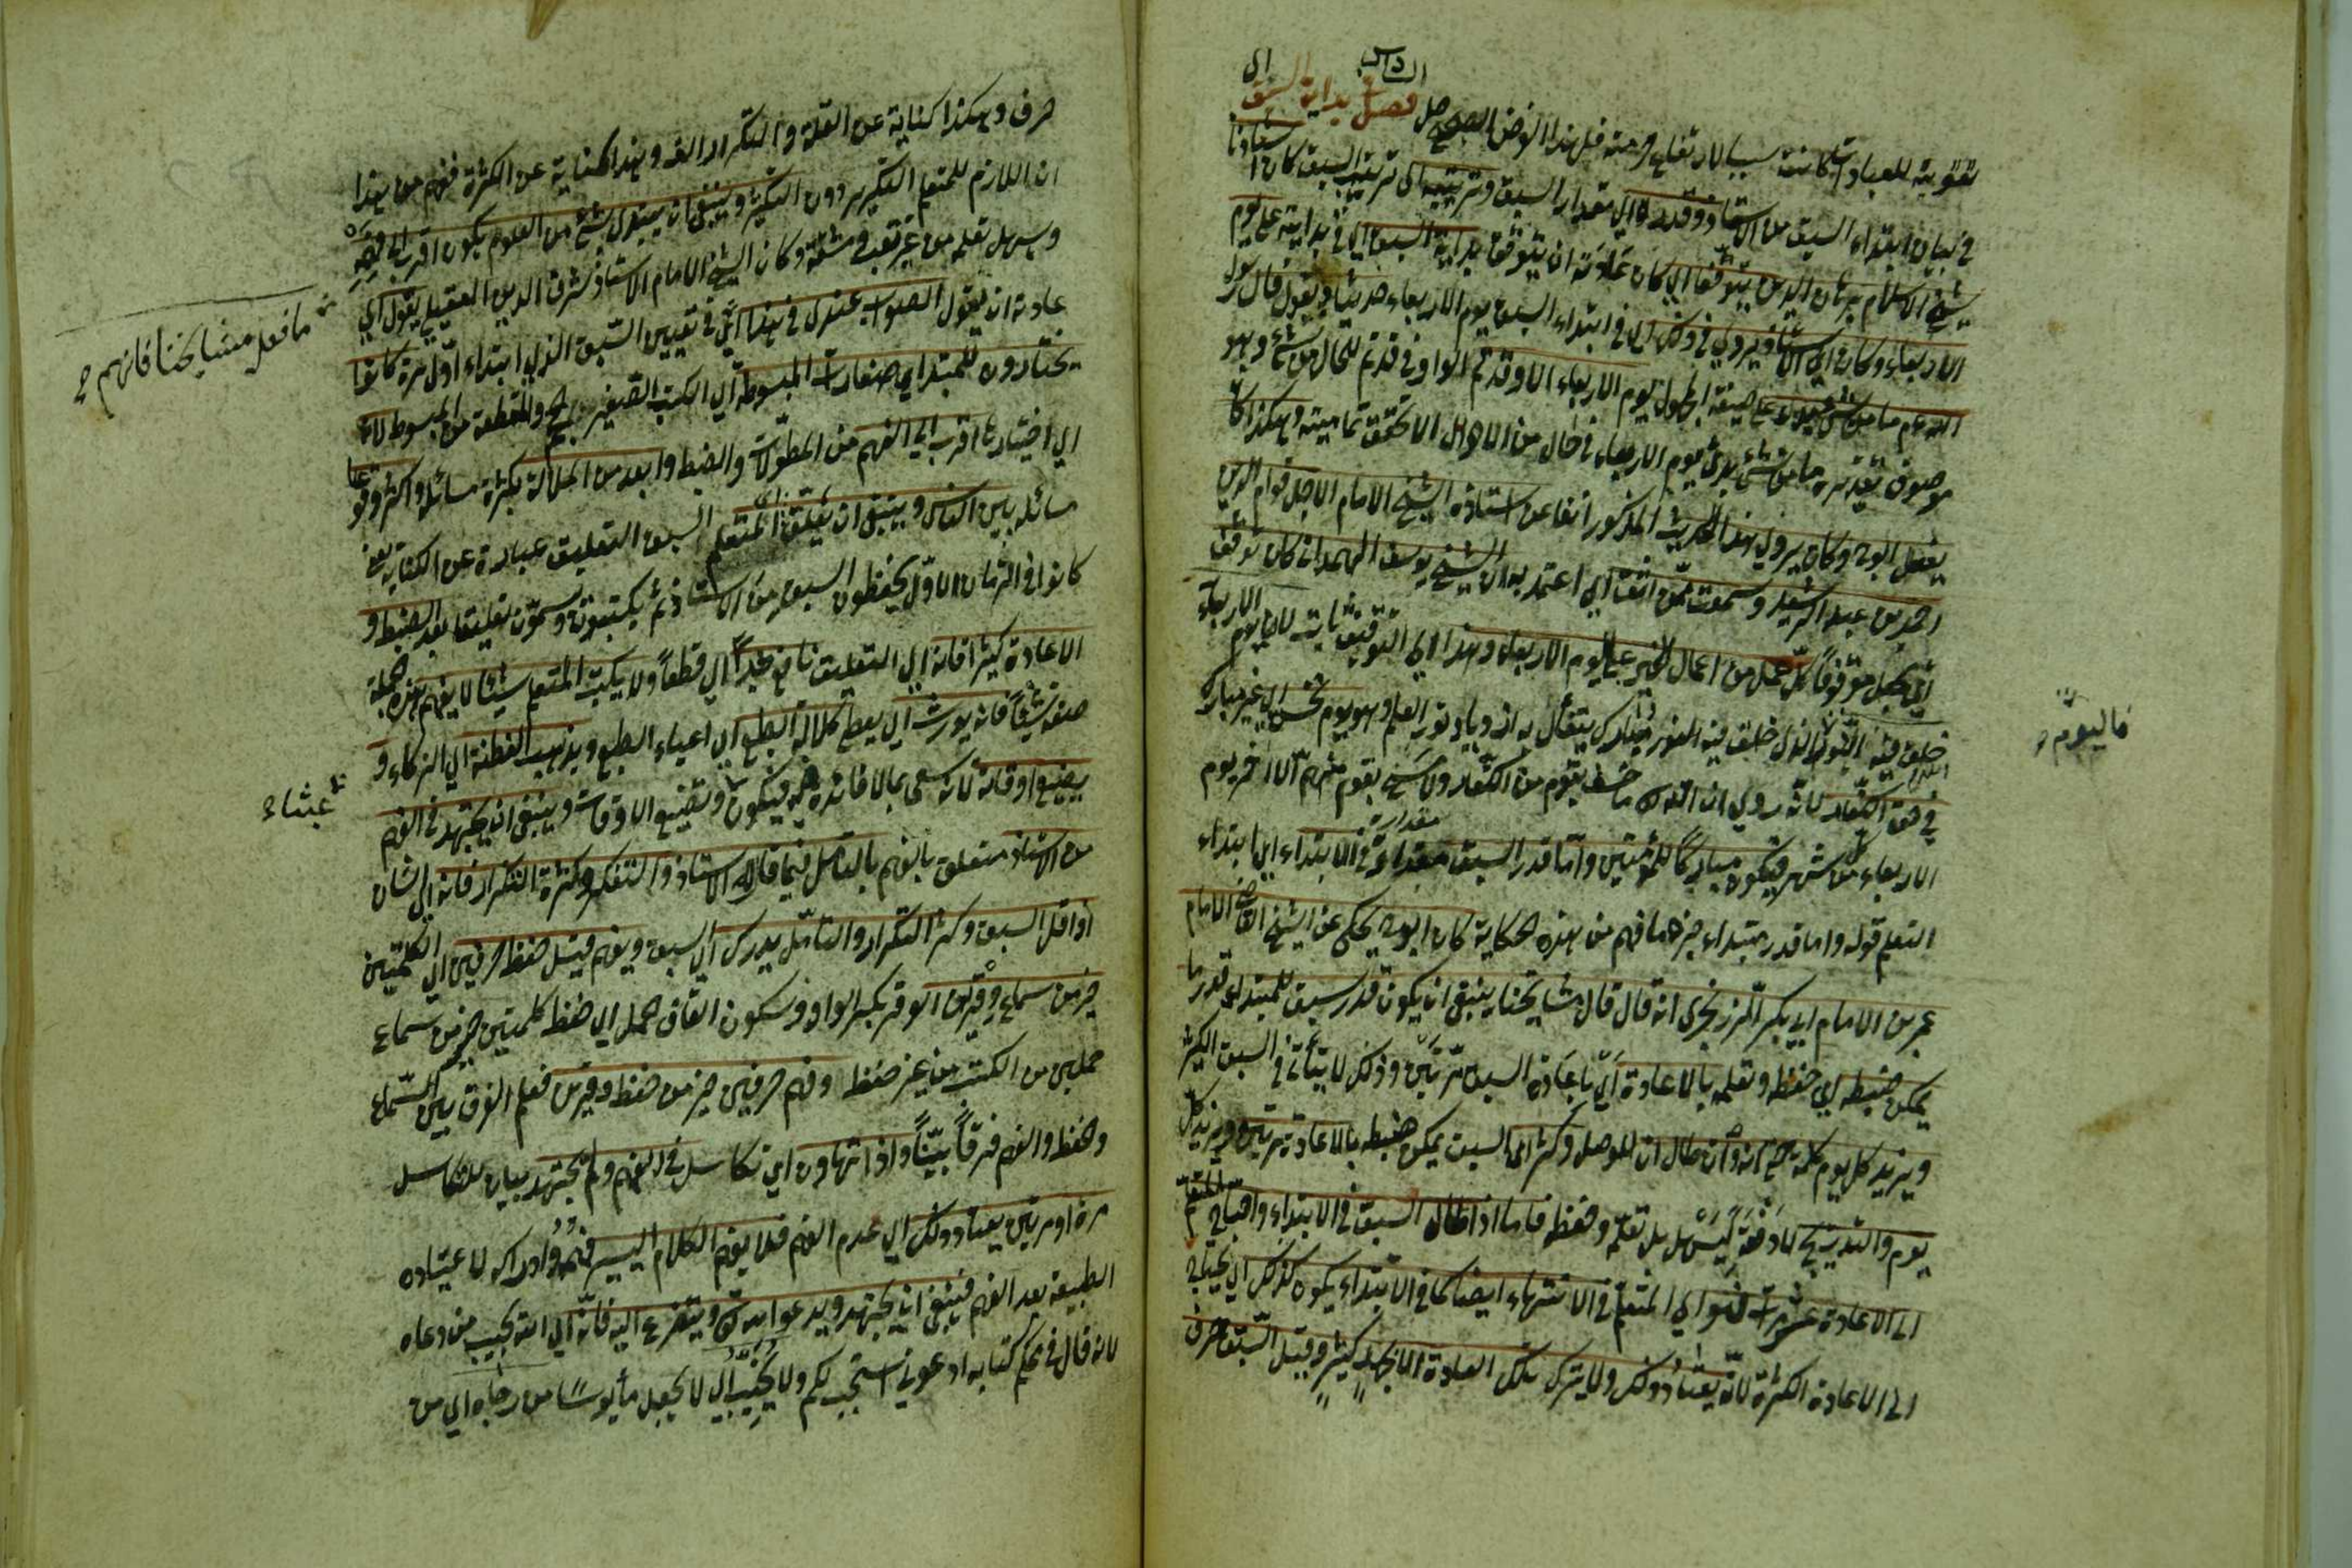 السادس
تقوية للعبادة كانت سببا لارتفاع حرمته فل هذا الوضع الصحيح فصل فصل بداية السبق الى
في بيان ابتداء السبق من الاستاذ وقدره اي مقدار السبق وترتيبه اى ترتيب السبق كان استاذنا
شيخ الاسلام برهان الدين يتوقف اي كان عادته ان يتوقف بداية السبق اي في بدايته على يوم
الاربعاء وكان اي الاستاذ يروي في ذلك اي في ابتداء السبق يوم الاربعاء حديثا ويقول قال رسول
الله عم ما من شئ بدئ على صيغة المجهول يوم الاربعاء الا وقد تم الواو في قد تم للحال من شئ وهو
موصوف تقديره ما من شئ بدئ يوم الاربعاء في حال من الاحوال الا تحقق تماميته وهكذا كان
يفعل ابوح وكان يروي هذا الحديث المذكور انفا عن استاذه الشيخ الامام الاجل قوام الدين
احمد بن عبد الرشيد وسمعت ممن اثق اي اعتمد به ان الشيخ يوسف الهمداني كان يوقف
اي يجعل موقوفا كل عمل من اعمال الخير على يوم الاربعاء وهذا اي التوقيف ثابت لان يوم الاربعاء
خلق فيه النور الذي خلق فيه النور مبارك يتفأل به ازدياد نور العلم وهو يوم نحس اي غير مبارك
في حق الكفار لانه روي ان الله تع ما خسف بقوم من الكفار ولا مسخ بقوم منهم الا اخر يوم
الاربعاء من كل شهر فيكون مباركا للمؤمنين واما قدر السبق مقداره في الابتداء اي ابتداء
التعلم قوله واما قدر مبتداء خبرهما فهم من هذه الحكاية كان ابوح يحكى عن الشيخ القاضي الامام
عمر بن الامام ابي بكر الزرنجرى انه قال قال مشايخنا ينبغى ان يكون قدر سبق للمبتدى قدر ما
يمكن ضبطه اي حفظه وتعلمه بالاعادة اي باعادة السبق مرتين وذلك لا يتأتى في السبق الكثير
ويزيد كل يوم كلمة حتى انه وان طال ان للوصل وكثر اى السبق يمكن ضبطه بالاعادة مرتين ويزيد كل
يوم والتدريج لا دفعة ليسهل بل تعلمه وحفظه فاما اذا طال السبق في الابتداء واحتاج المتعلم
الى الاعادة عشر مرات فهو اي المتعلم في الانتهاء ايضا كما في الابتداء يكون كذلك اي يحتاج
الى الاعادة الكثيرة لانه يعتاد ذلك ولا يترك تلك العادة الا بجهد كثير وقيل السبق حرف
فاليوم
حرف وهكذا كناية عن القلة والتكرار الف وهذا كناية عن الكثرة فهم من هذا
ان اللازم للمتعلم التكرير دون التكثير وينبغى ان يبتدى بشئ من العلوم يكون اقرب الى فهمه
وسهل تعلمه من غير تعب ومشقة وكان الشيخ الامام الاستاذ شرف الدين العقيلى يقول اي
عادته ان يقول الصواب عندى في هذا اي في تعيين السبق الذي ابتداء اول مرة كانوا
يختارون للمبتدا صغارات المبسوط اي الكتب الصغير والمقطعة من المبسوط لانه
اي اختياره اقرب الى الفهم من المطولات والضبط وابعد من الملالة بكثرة مسائل واكثر وقوعا
مسائله بين الناس وينبغى ان يعلق المتعلم السبق التعليق عبارة عن الكتابة يعنى
كانوا في الزمان الاول يحفظون السبق من الاستاذ ثم يكتبونه وسموه تعليقا بعد الضبط و
الاعادة كثيرا فانه اي التعليق نافع جدا اي قطعا ولا يكتب المتعلم شيئا لا يفهم هذه جملة
صفة شيئا فانه يورث اي يعطى كلالة الطبع اي اعياء الطبع ويذهب الفطنة اي الذكاء و
يضيع اوقاته لانه سعى بما لا فائدة له فيكون وتضييع الاوقات وينبغى ان يجتهد في الفهم
من الاستاذ متعلق بالفهم بالتأمل فيما قاله الاستاذ والتفكر وكثرة التكرار فانه اي الشان
اذا قل السبق وكثر التكرار والتأمل يدرك اي السبق ويفهم قيل حفظ حرفين اي الكلمتين
خير من سماع وقرين الوقر بكسر الواو وسكون القاف حمل اي حفظ كلمتين خير من سماع
حملين من الكتب من غير حفظ وفهم حرفين خير من حفظ وقرين فعلم الفرق بين السماع
وحفظ والفهم فرقا بينا واذا تهاون اي تكاسل في الفهم ولم يجتهد بيان للتكاسل
مرة او مرتين يعتاد ذلك اي عدم الفهم فلا يفهم الكلام اليسير فهمه وادراكه لاعتياده
الطبيعة بعد الفهم فينبغى ان يجتهد ويدعو الله تع ويتضرع اليه فانه اي الله يجيب من دعاه
لانه قال في محكم كتابه ادعونى استجب لكم ولا يخيب اي لا يجعل مأيوسا من رجاه اي من
ما فعل مشايخنا فانهم
عبثاء